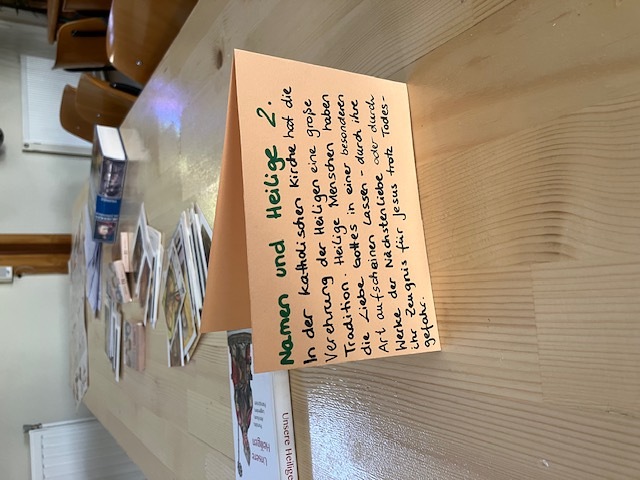 Namen und Heilige 2.
In der katholischen Kirche hat die
Verehrung der Heiligen eine große
Tradition. Heilige Menschen haben
die Liebe Gottes in einer besonderen
Art aufscheinen lassen - durch ihre
Werke der Nächstenliebe oder durch
ihr Zeugnis für Jesus trotz Todes-
gefahr.
Unsere
Heiligen
Unsere Heilige